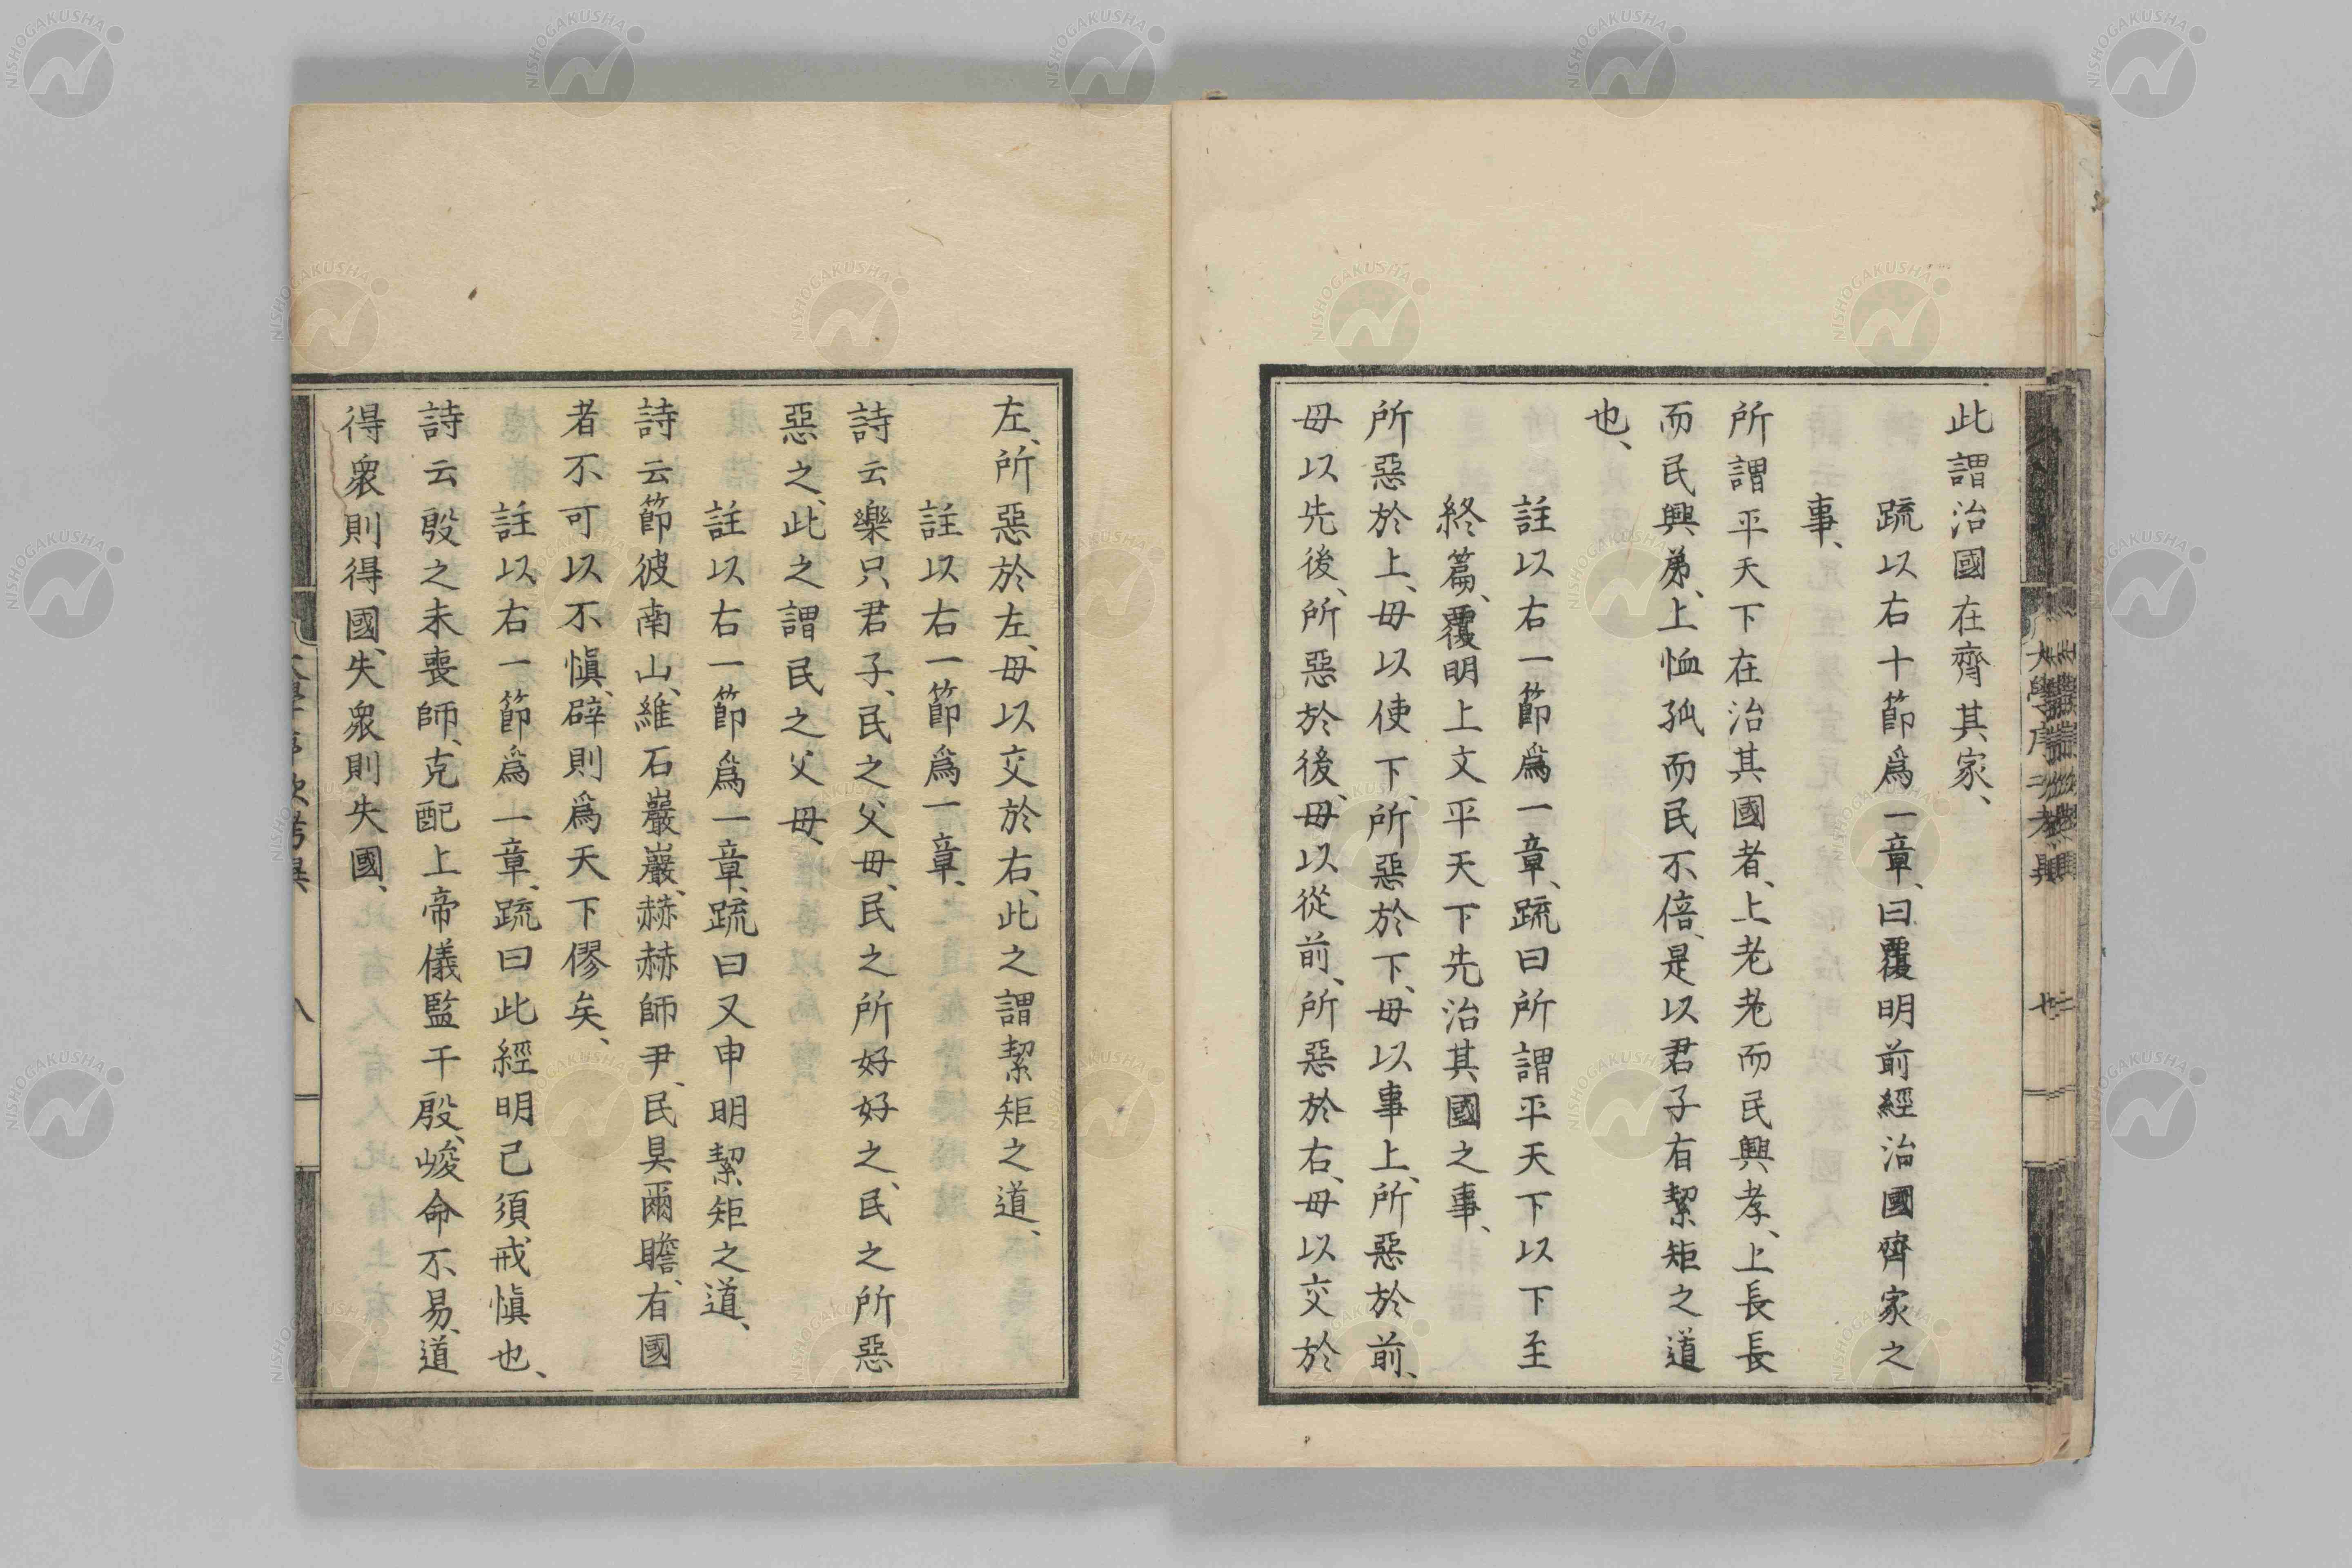 此謂治國在齊其家、
疏以右十節爲一章、曰覆明前經治國齊家之
事、
所謂平天下在治其國者、上老老而民興孝、上長長
而民興弟、上恤孤而民不倍、是以君子有絜矩之道
也、
註以右一節爲一章、疏曰所謂平天下以下至
終篇、覆明上文平天下先治其國之事、
所惡於上、毋以使下、所惡於下、毋以事上、所惡於前、
毋以先後、所惡於後、毋以從前、所惡於右、毋以交於
左、所惡於左、毋以交於右、此之謂絜矩之道、
註以右一節爲一章、
詩云樂只君子、民之父毋、民之所好好之、民之所惡
惡之、此之謂民之父毋、
註以右一節爲一章、疏曰又申明絜矩之道、
詩云節彼南山、維石巖巖、赫赫師尹、民具爾瞻、有國
者不可以不愼、辟則爲天下僇矣、
註以右一節爲一章、疏曰此經明己須戒愼也、
詩云殷之未喪師、克配上帝儀監于殷、峻命不易、道
得衆則得國、失衆則失國、
八
NISHOGAKUSHA